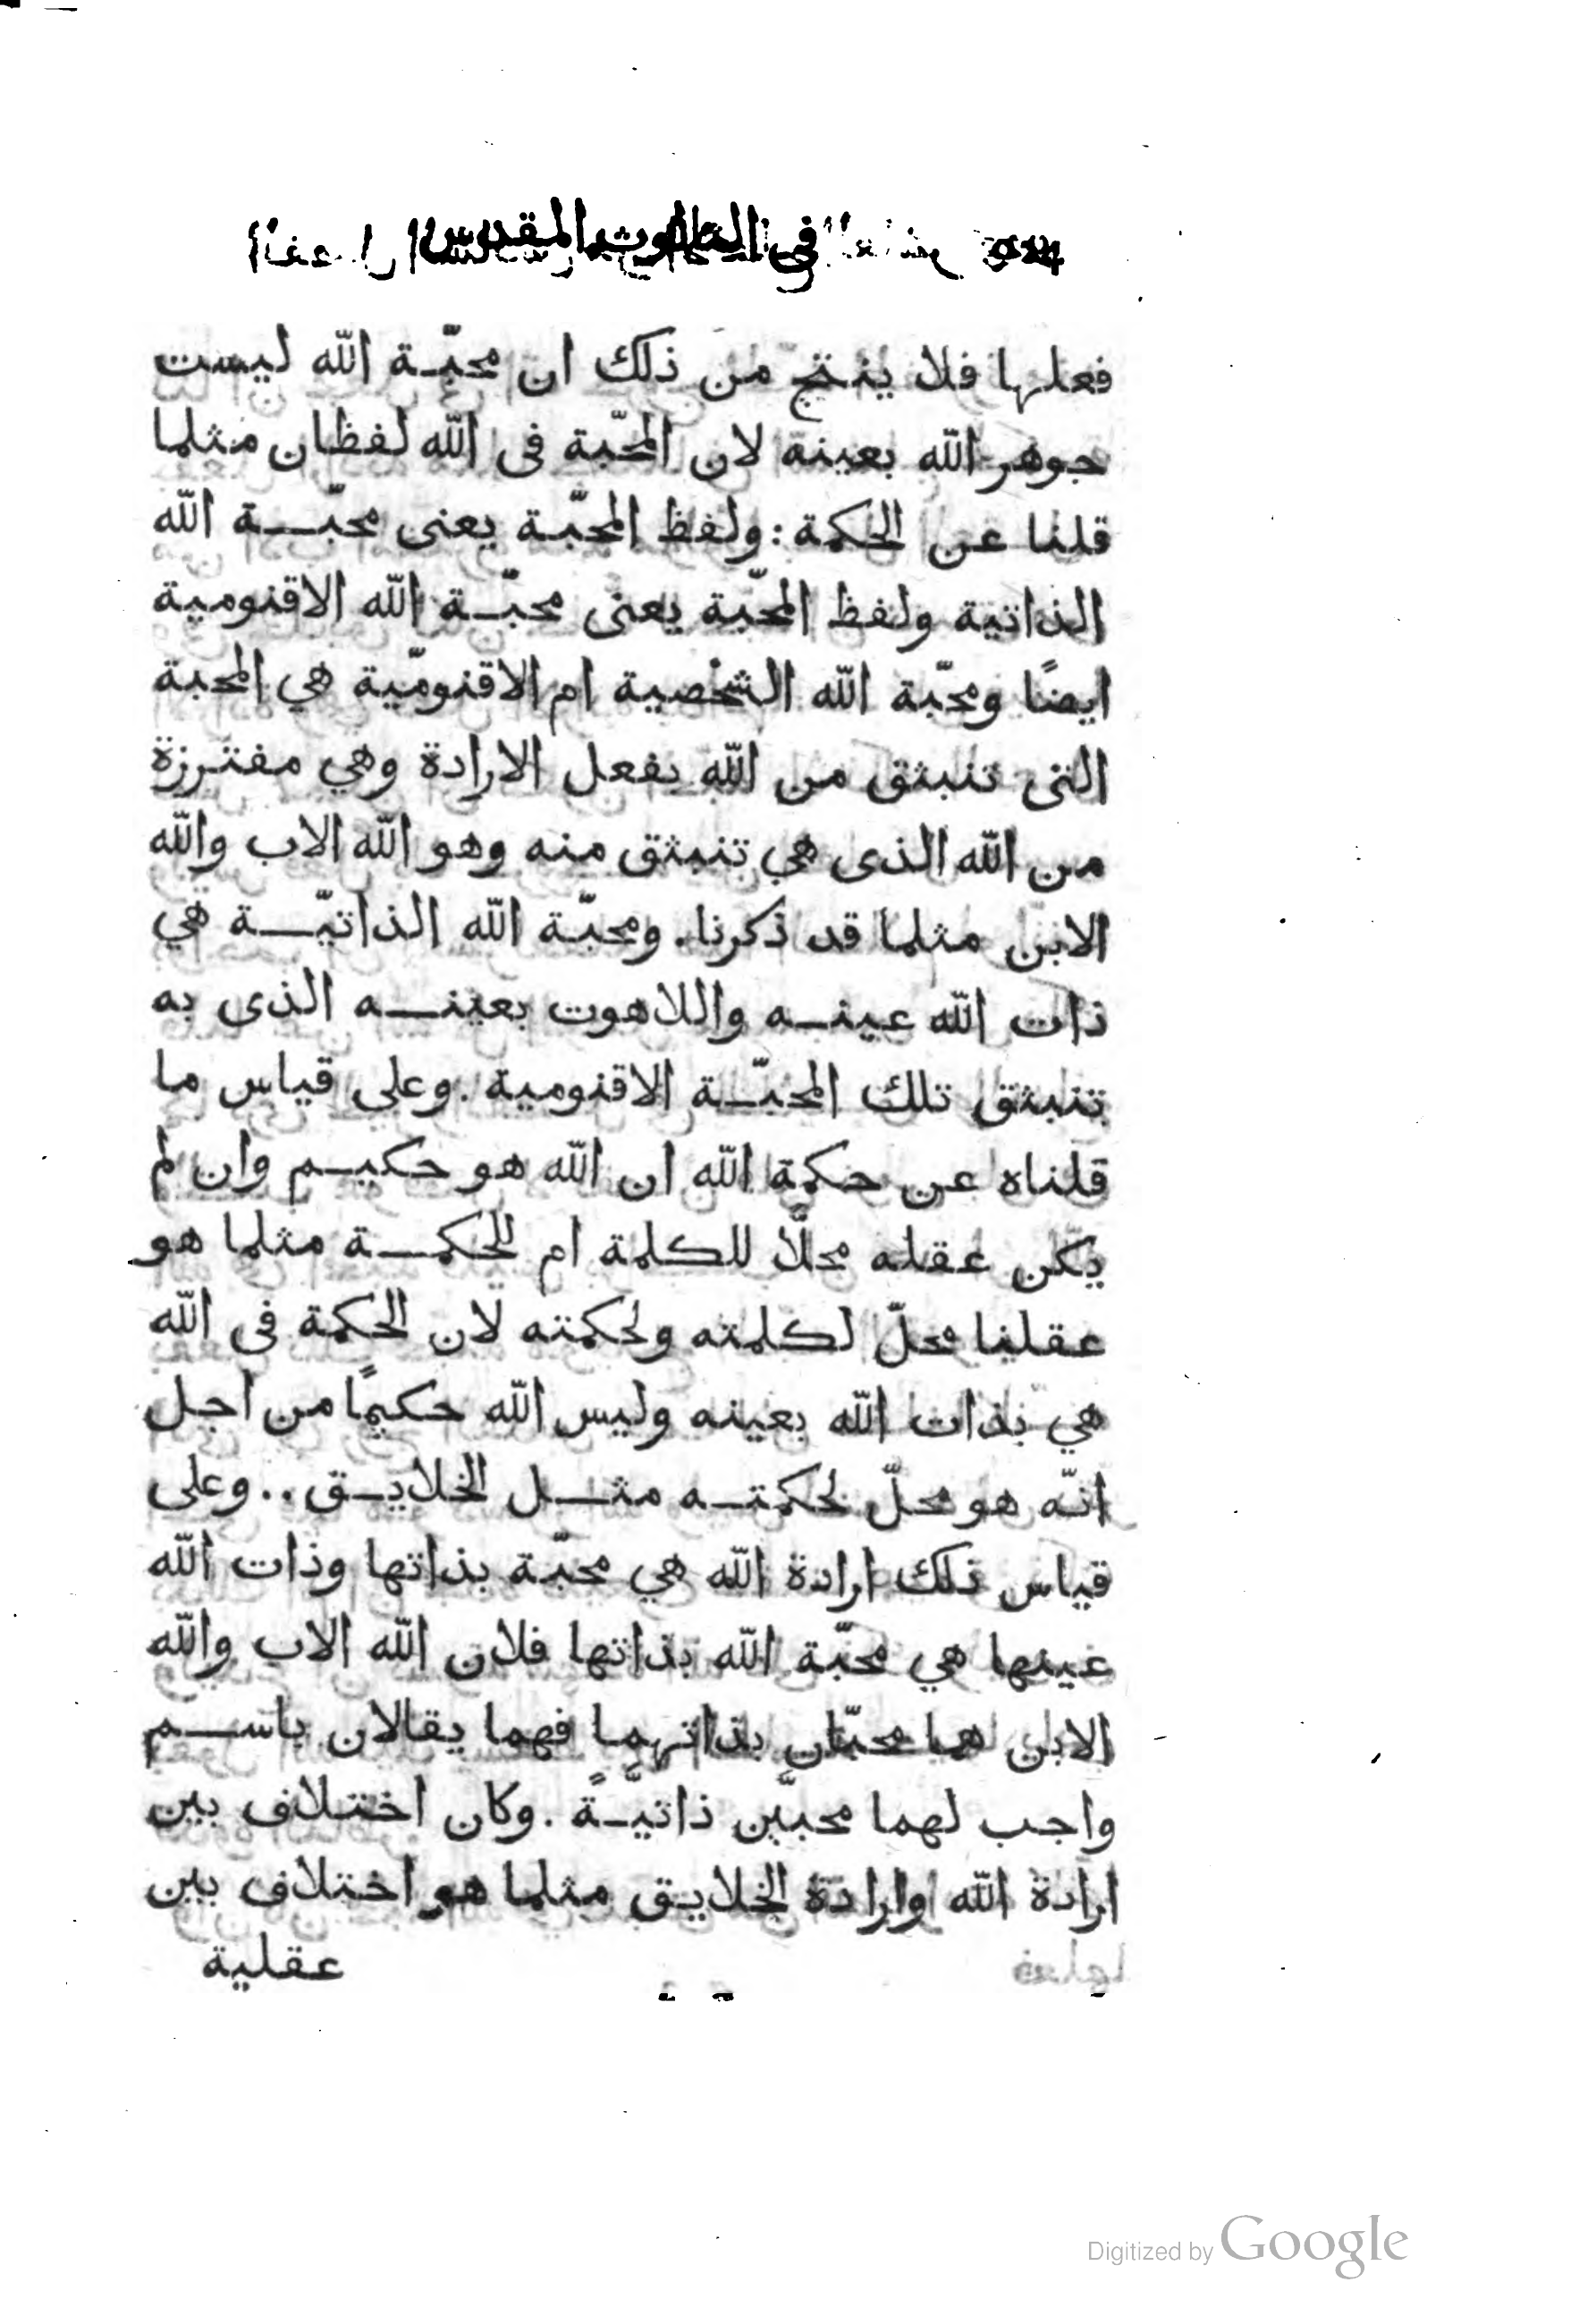 في الثالوث المقدس
فعلها فلا ينتج من ذلك ان محبّـة الله ليست
جوهر الله بعينه لان المحبّة فى الله لفظان مثلما
قلنا عن الحكمة : ولفظ المحبّـة يعنى محبّـــة الله
الذاتية ولفظ المحبّة يعنى محبّـة الله الاقنومية
ايضًا ومحبّة الله الشخصية ام الاقنوميّة هي المحبة
التى تنبثق من الله بفعل الارادة وهي مفترزة
من الله الذى هي تنبثق منه وهو الله الاب والله
الابن مثلما قد ذكرنا . ومحبّة الله الذاتيّـــة هي
ذات الله عينـه واللاهوت بعينـــه الذى به
تنبثق تلك المحبّـة الاقنومية . وعلى قياس ما
قلناه عن حكمة الله ان الله هو حكيـم وان لم
يكن عقله محلّا للكلمة ام للحكمـــة مثلما هو
عقلنا محلّ لكلمته ولحكمته لان الحكمة فى الله
هي بذات الله بعينه وليس الله حكيمًا من اجل
انّه هو محلّ لحكمتـه مثـــل الخلايـق .. وعلى
قياس ذلك ارادة الله هي محبّة بذاتها وذات الله
عينها هي محبّة الله بذاتها فلان الله الاب والله
الابن هما محبّان بذاتهما فهما يقالان باســـم
واجب لهما محبيّن ذاتيّـةً . وكان اختلاف بين
ارادة الله وارادة الخلايق مثلما هو اختلاف بين
عقلية
Digitized by Google